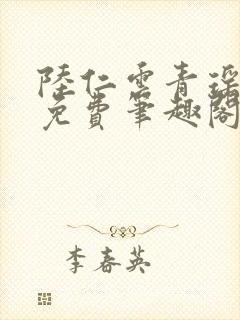 陸仁雲青瑤
免費筆趣閣
李春英